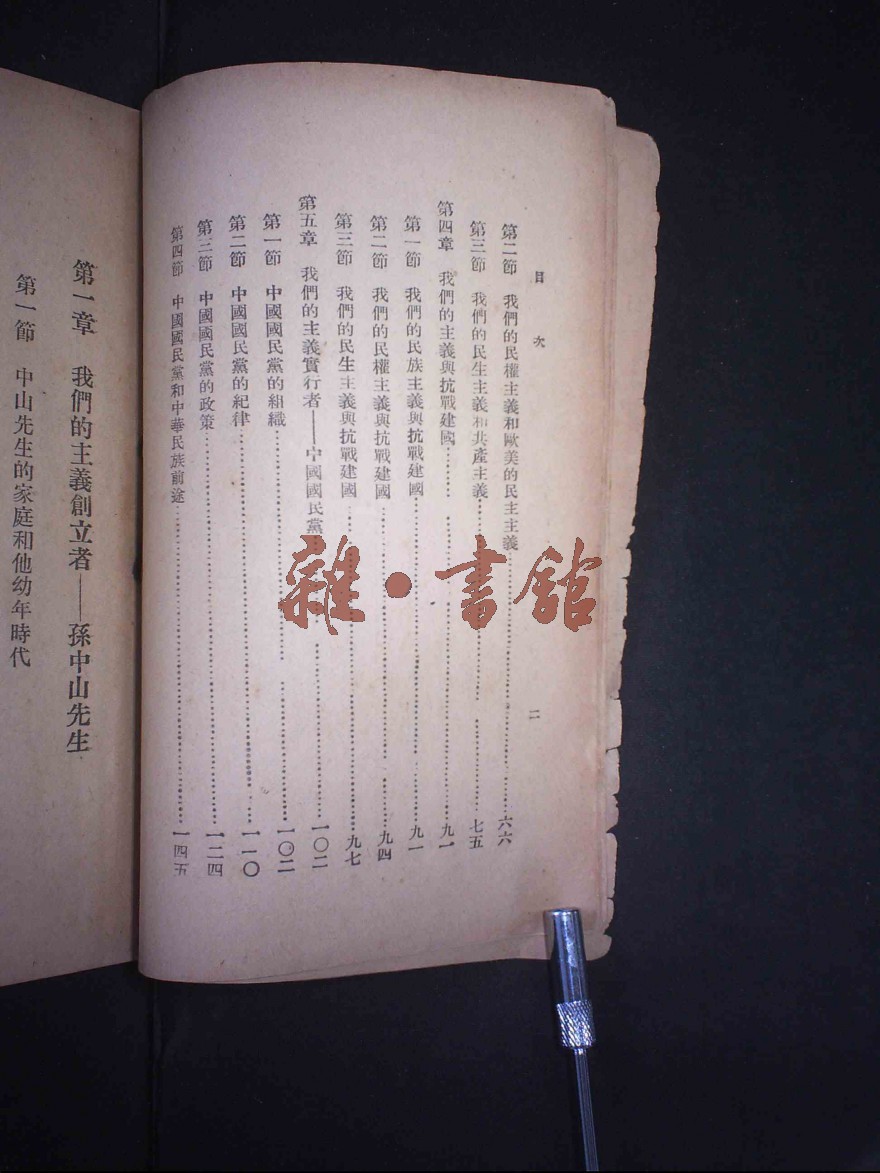 目次
二
第二節 我們的民權主義和歐美的民主主義……六六
第三節 我們的民生主義和共產主義……七五
第四章 我們的主義與抗戰建國……九一
第一節 我們的民族主義與抗戰建國……九一
第二節 我們的民權主義與抗戰建國……九四
第三節 我們的民生主義與抗戰建國……九七
第五章 我們的主義實行者——中國國民黨……一〇二
第一節 中國國民黨的組織……一〇二
第二節 中國國民黨的紀律……一一〇
第三節 中國國民黨的政策……一二四
第四節 中國國民黨和中華民族前途……一四五
第一章 我們的主義創立者——孫中山先生
第一節 中山先生的家庭和他幼年時代
雜·書館